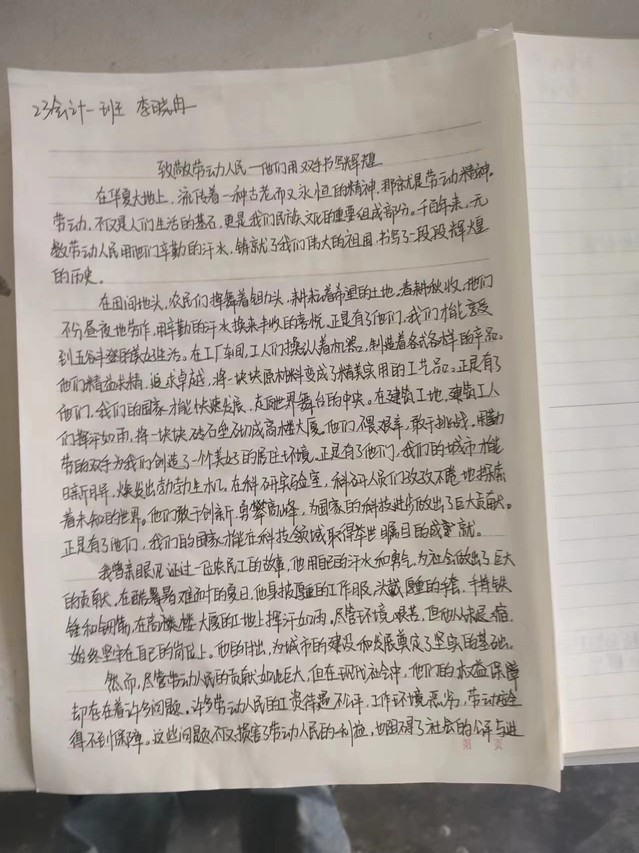 23会计一班 李晓冉
致敬劳动人民—他们用双手书写辉煌
在华夏大地上，流传着一种古老而又永恒的精神，那就是劳动精神。
劳动，不仅是人们生活的基石，更是我们民族文化的重要组成部分。千百年来，无
数劳动人民用他们辛勤的汗水，铸就了我们伟大的祖国，书写了一段段辉煌
的历史。
在田间地头，农民们挥舞着锄头，耕耘着希望的土地。春耕秋收，他们
不分昼夜地劳作，用辛勤的汗水换来丰收的喜悦。正是有了他们，我们才能享受
到五谷丰登的美好生活。在工厂车间，工人们操纵着机器，制造着各式各样的产品。
他们精益求精，追求卓越，将一块块原材料变成了精美实用的工艺品。正是有了
他们，我们的国家才能快速发展，走向世界舞台的中央。在建筑工地，建筑工人
们挥汗如雨，将一块块砖石垒砌成高楼大厦。他们不畏艰辛，敢于挑战。用勤
劳的双手为我们创造了一个美好的居住环境。正是有了他们，我们的城市才能
日新月异，焕发出勃勃生机。在科研实验室，科研人员们孜孜不倦地探索
着未知的世界。他们敢于创新，勇攀高峰，为国家的科技进步做出了巨大贡献。
正是有了他们，我们的国家才能在科技领域取得举世瞩目的成就。
我曾亲眼见证过一位农民工的故事，他用自己的汗水和勇气，为社会做出了巨大
的贡献。在酷暑难耐的夏日，他身披厚重的工作服，头戴厚重的安全帽，手持铁
锤和钢筋，在高楼大厦的工地上挥汗如雨。尽管环境艰苦，但他从未退缩，
始终坚守在自己的岗位上。他的付出，为城市的建设和发展奠定了坚实的基础。
然而，尽管劳动人民的贡献如此巨大，但在现代社会中，他们的权益保障
却存在着许多问题。许多劳动人民的工资待遇不公平，工作环境恶劣，劳动安全
得不到保障。这些问题不仅损害了劳动人民的利益，也阻碍了社会的公平与进
第 页